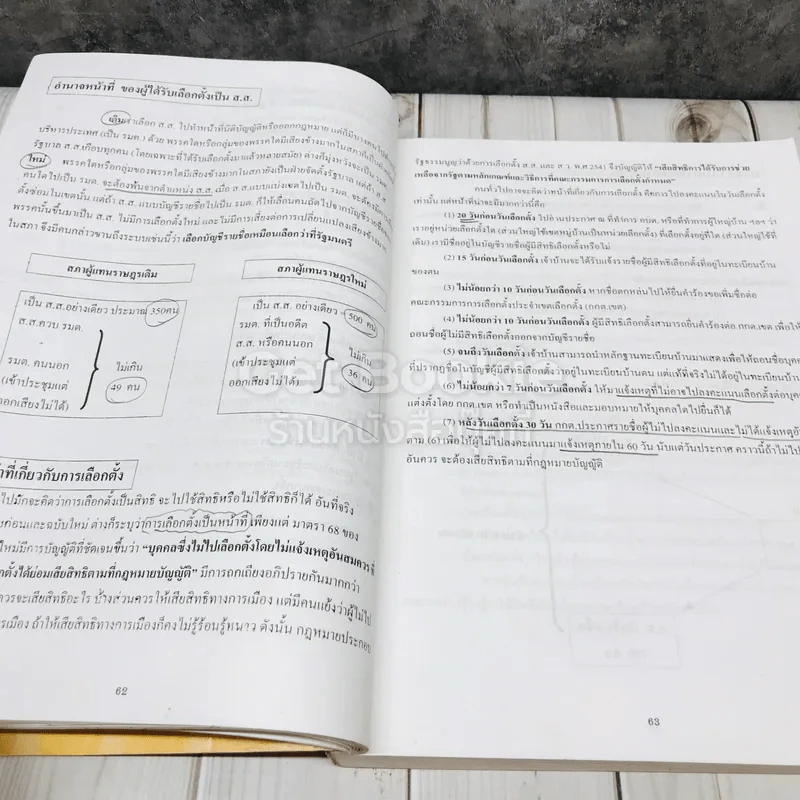 อำนาจหน้าที่ ของผู้ได้รับเลือกตั้งเป็น ส.ส.
เดิม เราเลือก ส.ส. ไปทำหน้าที่นิติบัญญัติหรือออกกฎหมาย แต่ก็มีบางคนไป
บริหารประเทศ (เป็น รมต.) ด้วย พรรคใดหรือกลุ่มของพรรคใดมีเสียงข้างมากในสภาก็เป็น
รัฐบาล ส.ส.เกือบทุกคน (โดยเฉพาะที่ได้รับเลือกตั้งมาแล้วหลายสมัย) ต่างก็มุ่งหวังจะเป็น รมต.
ใหม่ พรรคใดหรือกลุ่มของพรรคใดมีเสียงข้างมากในสภายังเป็นฝ่ายจัดตั้งรัฐบาล แต่ถ้า ส.ส.
คนใดไปเป็น รมต. จะต้องพ้นจากตำแหน่ง ส.ส. เมื่อ ส.ส.แบบแบ่งเขตไปเป็น รมต. จะต้องมีการเลือก
ตั้งซ่อมในเขตนั้น แต่ถ้า ส.ส. แบบบัญชีรายชื่อไปเป็น รมต. ก็ให้เลื่อนคนถัดไปจากบัญชีรายชื่อที่
พรรคนั้นขึ้นมาเป็น ส.ส. ไม่มีการเลือกตั้งใหม่ และไม่มีการเสี่ยงต่อการเปลี่ยนแปลงเสียงข้างมาก
ในสภา จึงมีคนกล่าวขานถึงระบบเช่นนี้ว่า เลือกบัญชีรายชื่อเหมือนเลือกว่าที่รัฐมนตรี
สภาผู้แทนราษฎรเดิม
เป็น ส.ส.อย่างเดียว ประมาณ 350คน
ส.ส.ควบ รมต.
รมต. คนนอก
(เข้าประชุมแต่
ออกเสียงไม่ได้)
ไม่เกิน
49 คน
สภาผู้แทนราษฎรใหม่
เป็น ส.ส. อย่างเดียว = 500 คน
รมต. ที่เป็นอดีต
ส.ส. หรือคนนอก
(เข้าประชุมแต่
ออกเสียงไม่ได้)
ไม่เกิน
36 คน
ร้านหนังสือ
ที่เกี่ยวกับการเลือกตั้ง
ไปมักจะคิดว่าการเลือกตั้งเป็นสิทธิ จะไปใช้สิทธิหรือไม่ใช้สิทธิก็ได้ อันที่จริง
ก่อนและฉบับใหม่ ต่างก็ระบุว่าการเลือกตั้งเป็นหน้าที่ เพียงแต่ มาตรา 68 ของ
ใหม่มีการบัญญัติที่ชัดเจนขึ้นว่า “บุคคลซึ่งไม่ไปเลือกตั้งโดยไม่แจ้งเหตุอันสมควร
ตั้งได้ย่อมเสียสิทธิตามที่กฎหมายบัญญัติ” มีการถกเถียงอภิปรายกันมากกว่า
ควรจะเสียสิทธิอะไร บ้างส่วนควรให้เสียสิทธิทางการเมือง แต่มีคนแย้งว่าผู้ไม่ไป
เมือง ถ้าให้เสียสิทธิทางการเมืองก็คงไม่รู้ร้อนรู้หนาว ดังนั้น กฎหมายประกอบ
62
รัฐธรรมนูญว่าด้วยการเลือกตั้ง ส.ส. และ ส.ว. พ.ศ.2541 จึงบัญญัติให้ “เสียสิทธิการได้รับการช่วย
เหลือจากรัฐตามหลักเกณฑ์และวิธีการที่คณะกรรมการการเลือกตั้งกำหนด”
คนทั่วไปอาจจะคิดว่าหน้าที่เกี่ยวกับการเลือกตั้ง คือการไปลงคะแนนในวันเลือกตั้ง
เท่านั้น แต่หน้าที่นั้นจะมีมากกว่านี้คือ
(1) 20 วันก่อนวันเลือกตั้ง ไปอ่านประกาศ ณ ที่ทำการ กบต. หรือที่ทำการผู้ใหญ่บ้าน ฯลฯ ว่า
เราอยู่หน่วยเลือกตั้งใด (ส่วนใหญ่ใช้เขตหมู่บ้านเป็นหน่วยเลือกตั้ง) ที่เลือกตั้งอยู่ที่ใด (ส่วนใหญ่ใช้ที่
เดิม) เรามีชื่ออยู่ในบัญชีรายชื่อผู้มีสิทธิเลือกตั้งหรือไม่
(2) 15 วันก่อนวันเลือกตั้ง เจ้าบ้านจะได้รับแจ้งรายชื่อผู้มีสิทธิเลือกตั้งที่อยู่ในทะเบียนบ้าน
ของตน
(3) ไม่น้อยกว่า 10 วันก่อนวันเลือกตั้ง หากชื่อตกหล่นไปให้ยื่นคำร้องขอเพิ่มชื่อต่อ
คณะกรรมการการเลือกตั้งประจำเขตเลือกตั้ง (กกต.เขต)
(4) ไม่น้อยกว่า 10 วันก่อนวันเลือกตั้ง ผู้มีสิทธิเลือกตั้งสามารถยื่นคำร้องต่อ กกต.เขต เพื่อให้
ถอนชื่อผู้ไม่มีสิทธิเลือกตั้งออกจากบัญชีรายชื่อ
(5) จนถึงวันเลือกตั้ง เจ้าบ้านสามารถนำหลักฐานทะเบียนบ้านมาแสดงเพื่อให้ถอนชื่อบุคคล
ที่ปรากฏชื่อในบัญชีผู้มีสิทธิเลือกตั้งว่าอยู่ในทะเบียนบ้านตน แต่แท้ที่จริงไม่ได้อยู่ในทะเบียนบ้าน
(6) ไม่น้อยกว่า 7 วันก่อนวันเลือกตั้ง ให้มาแจ้งเหตุที่ไม่อาจไปลงคะแนนเลือกตั้งต่อบุคคล
แต่งตั้งโดย กกต.เขต หรือทำเป็นหนังสือและมอบหมายให้บุคคลใดไปยื่นก็ได้
(7) หลังวันเลือกตั้ง 30 วัน กกต.ประกาศรายชื่อผู้ไม่ไปลงคะแนนและไม่ได้แจ้งเหตุ
ตาม (6) เพื่อให้ผู้ไม่ไปลงคะแนนมาแจ้งเหตุภายใน 60 วัน นับแต่วันประกาศ คราวนี้ถ้าไม่ไป
อันควร จะต้องเสียสิทธิตามที่กฎหมายบัญญัติ
63